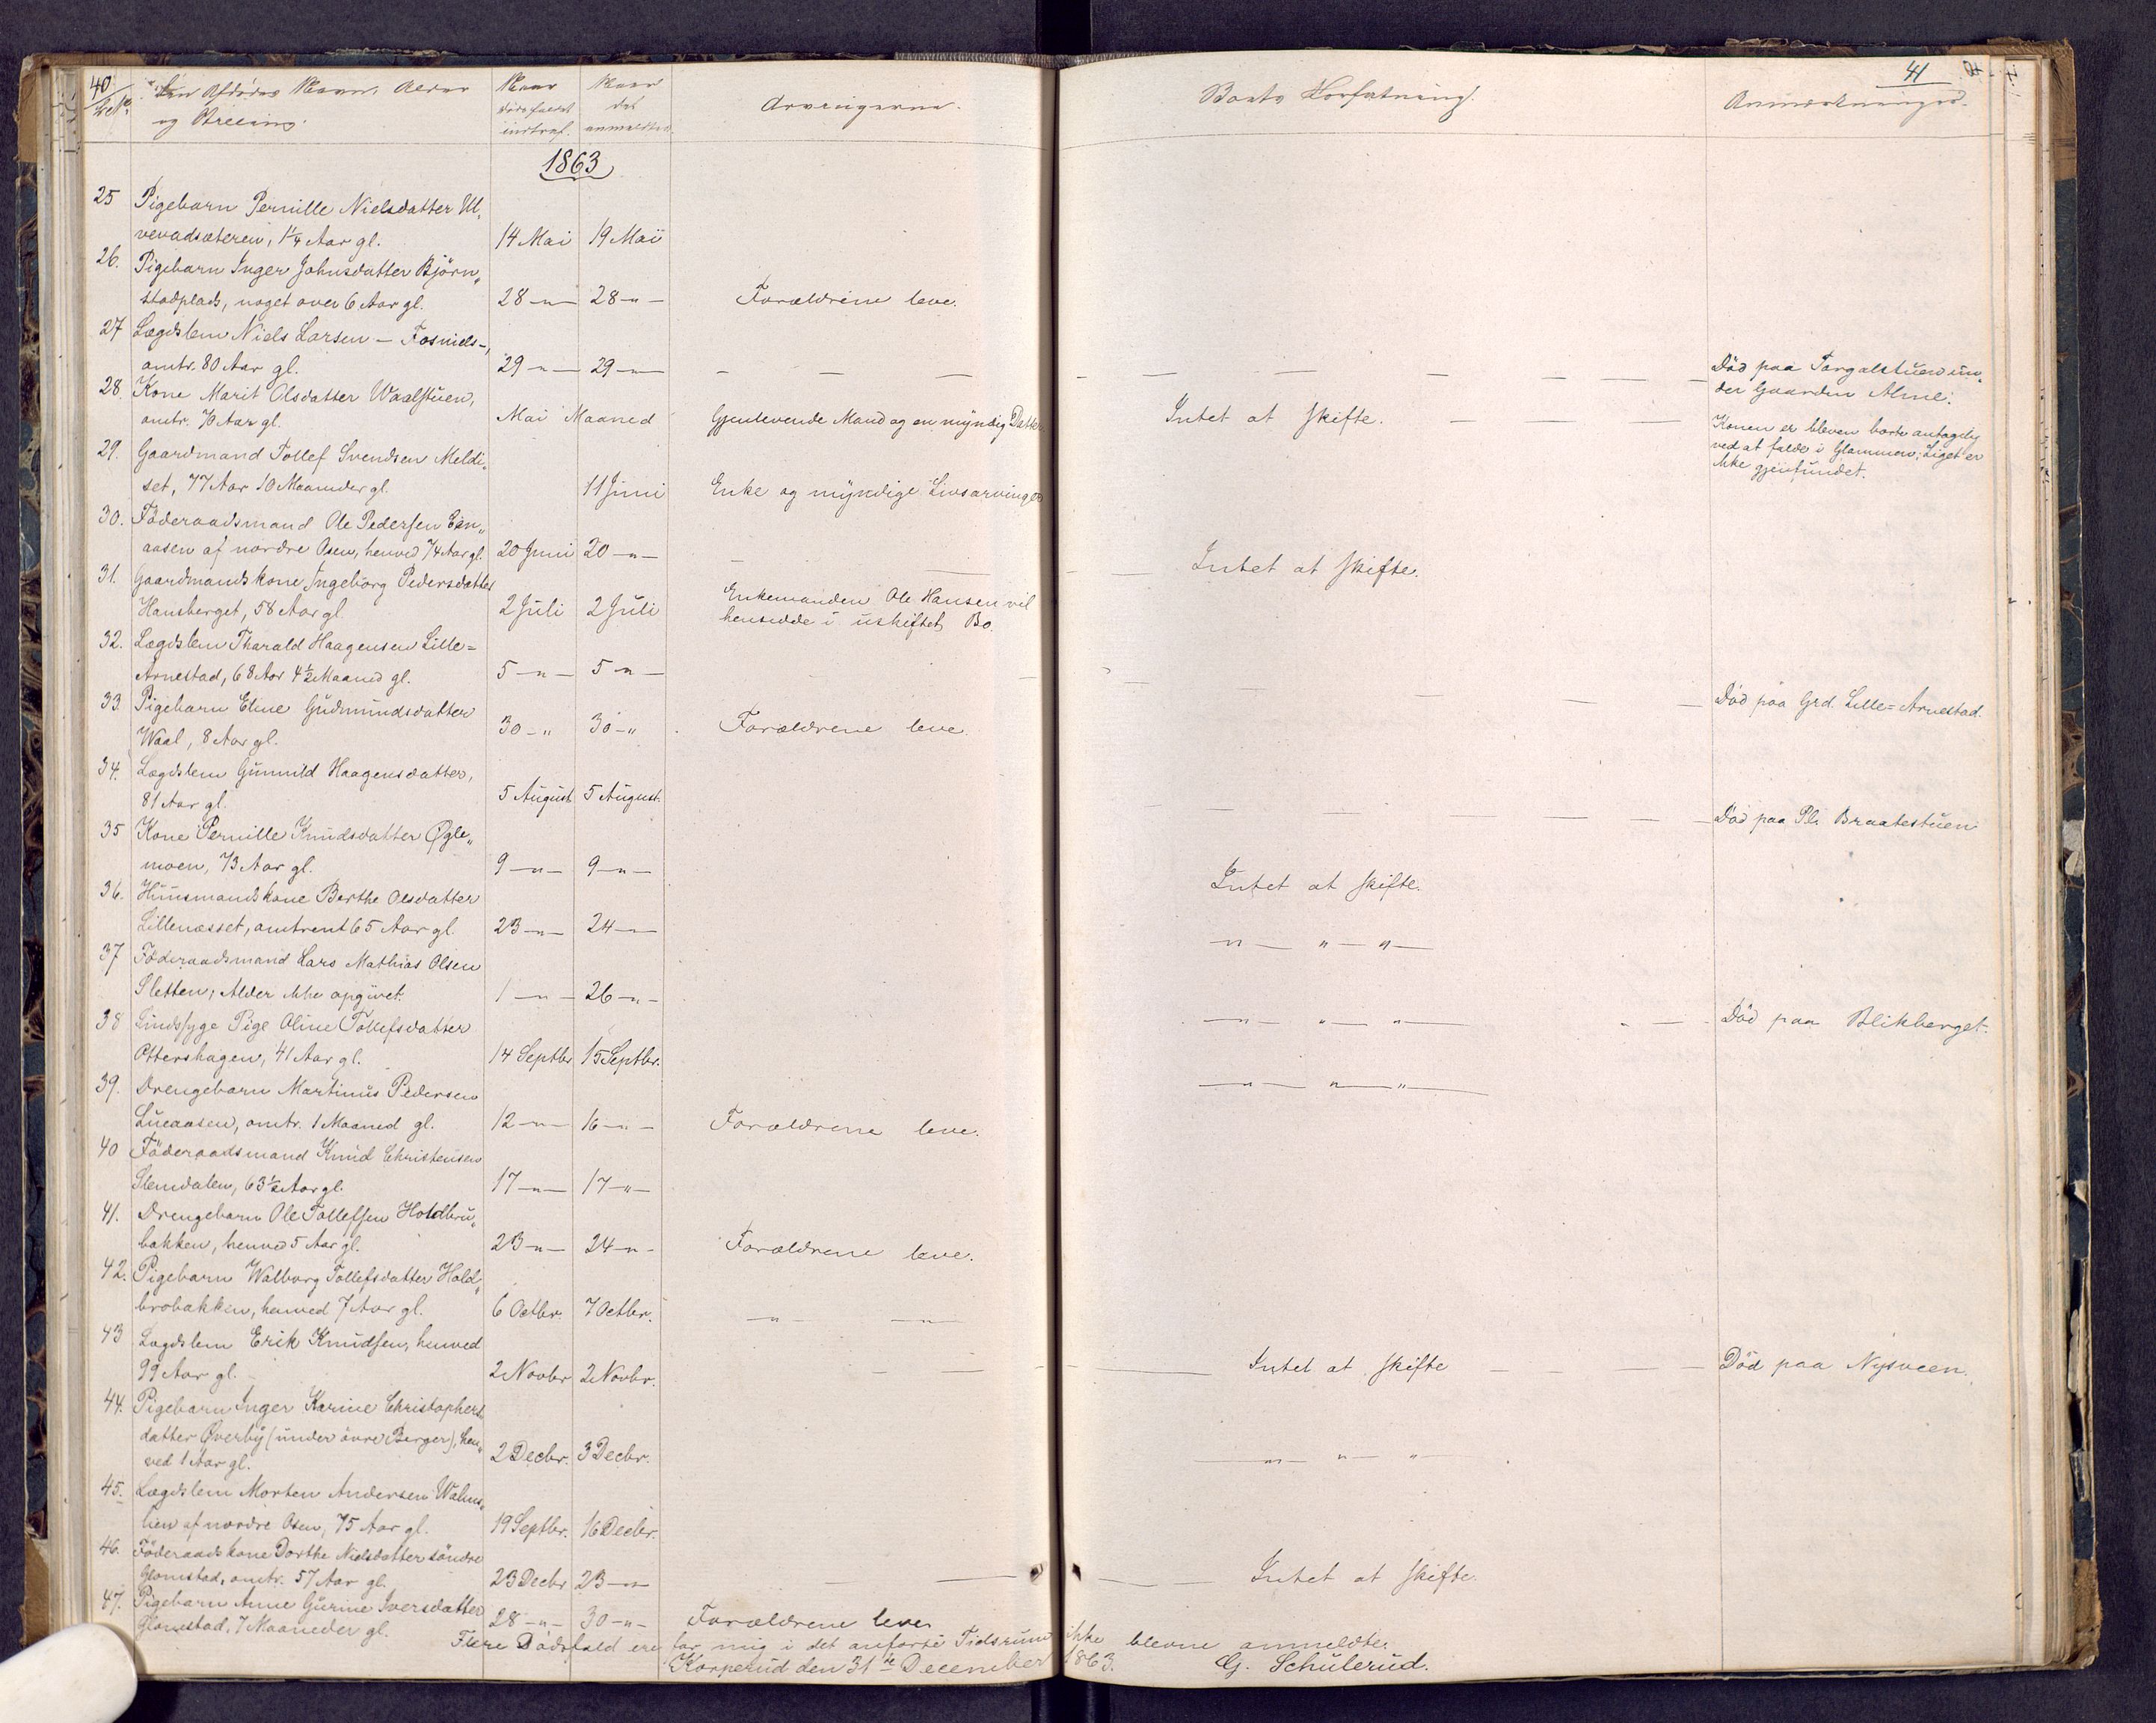 40
41
Den Afdødes Navn, Alder
og Stilling.
Naar
dødsfaldet
indtraf.
Naar
det
anmeldtes.
Arvingerne.
Boets Forfatning.
Anmærkninger.
1863
25 Pigebarn Pernille Nielsdatter Ul„
vevadsæteren, 1¼ Aar gl. 14 Mai 19 Mai
26. Pigebarn Inger Johnsdatter Bjørn„
stadplads, noget over 6 Aar gl. 28 -„- 28 -„- Forældrene leve.
27 Lægdslem Niels Larsen - Fosniels-,
omtr. 80 Aar gl. 29 -„- 29 -„- — — —
Død paa Torgalstuen un„
der Gaarden Alme.
28. Kone Marit Olsdatter Waalstuen,
omtr. 70 Aar gl. Mai Maaned Gjenlevende Mand og en myndig Datter Intet at skifte.
Konen er bleven borte antagelig
ved at falde i Glommen; Liget er
ikke gjenfundet.
29. Gaardmand Tollef Svendsen Meldi„
set, 77 Aar 10 Maaneder gl. 11 Juni Enke og myndige Livsarvinger
30. Föderaadsmand Ole Pedersen
aasen af nordre Osen, henved 74 Aar gl. 20 Juni 20 -„- Intet at skifte.
31. Gaardmandskone Ingeborg Pedersdatter
Hansberget, 58 Aar gl. 2 Juli 2 Juli
Enkemanden Ole Hansen vil
hensidde i uskiftet Bo.
32. Lægdslem Tharald Haagensen Lille=
Arnestad, 68 Aar 4½ Maaned gl. 5 -„- 5 -„- Död paa Grd. Lille=Arnestad.
33. Pigebarn Eline Gudmundsdatter
Waal, 8 Aar gl. 30 -„ 30 -„ Forældrene leve.
34. Lægdslem Gunnild Haagensdatter,
81 Aar gl. 5 August 5 August. Död paa Pl. Braatestuen
35 Kone Pernille Knudsdatter Øgle„
moen, 73 Aar gl. 9 -„- 9 -„- Intet at skifte.
36. Huusmandskone Berthe Olsdatter
Lillenæsset, omtrent 65 Aar gl. 23 -„- 24 -„- -„- „ - „ -
37 Föderaadsmand Lars Mathias Olsen
Sletten, Alder ikke opgivet. 1 -„- 26 -„- -„- „ - „ - Död paa Blikberget.
38 Sindssyge Pige Oline Tollefsdatter
Ottershagen, 41 Aar gl. 14 Septbr 15 Septbr. -„- „ - „ -
39. Drengebarn Martinus Pedersen
Lueaasen, omtr. 1 Maaned gl. 12 -„- 16 -„- Forældrene leve.
40 Föderaadsmand Knud Christensen
Stendalen, 63½ Aar gl. 17 -„- 17 -„-
41. Drengebarn Ole Tollefsen Holdbru„
bakken, henved 5 Aar gl. 23 -„- 24 -„- Forældrene leve.
42. Pigebarn Walborg Tollefsdatter Hold„
brobakken, henved 7 Aar gl. 6 Octbr. 7 Octbr. -„- -„-
43 Lægdslem Erik Knudsen, henved
99 Aar gl. 2 Novbr 2 Novbr. Intet at skifte Död paa Nysveen.
44. Pigebarn Inger Karine Christophers
datter Øverby (under övre Berger), hen„
ved 1 Aar gl. 2 Decbr. 3 Decbr. -„- „ - „ -
45. Lægdslem Morten Andersen
lien af nordre Osen, 75 Aar gl. 19 Septbr. 16 Decbr.
46. Föderaadskone Dorthe Nielsdatter söndre
Glomstad, omtr. 57 Aar gl. 23 Decbr 23 -„- Intet at skifte.
47. Pigebarn Anne Gurine Iversdatter
Glomstad, 7 Maaneder gl. 28 -„- 30 -„- Forældrene leve.
Flere Dödsfald ere for mig i det anförte Tidsrum ikke blevne anmeldte.
Korperud den 31te December 1863. G. Schulerud.